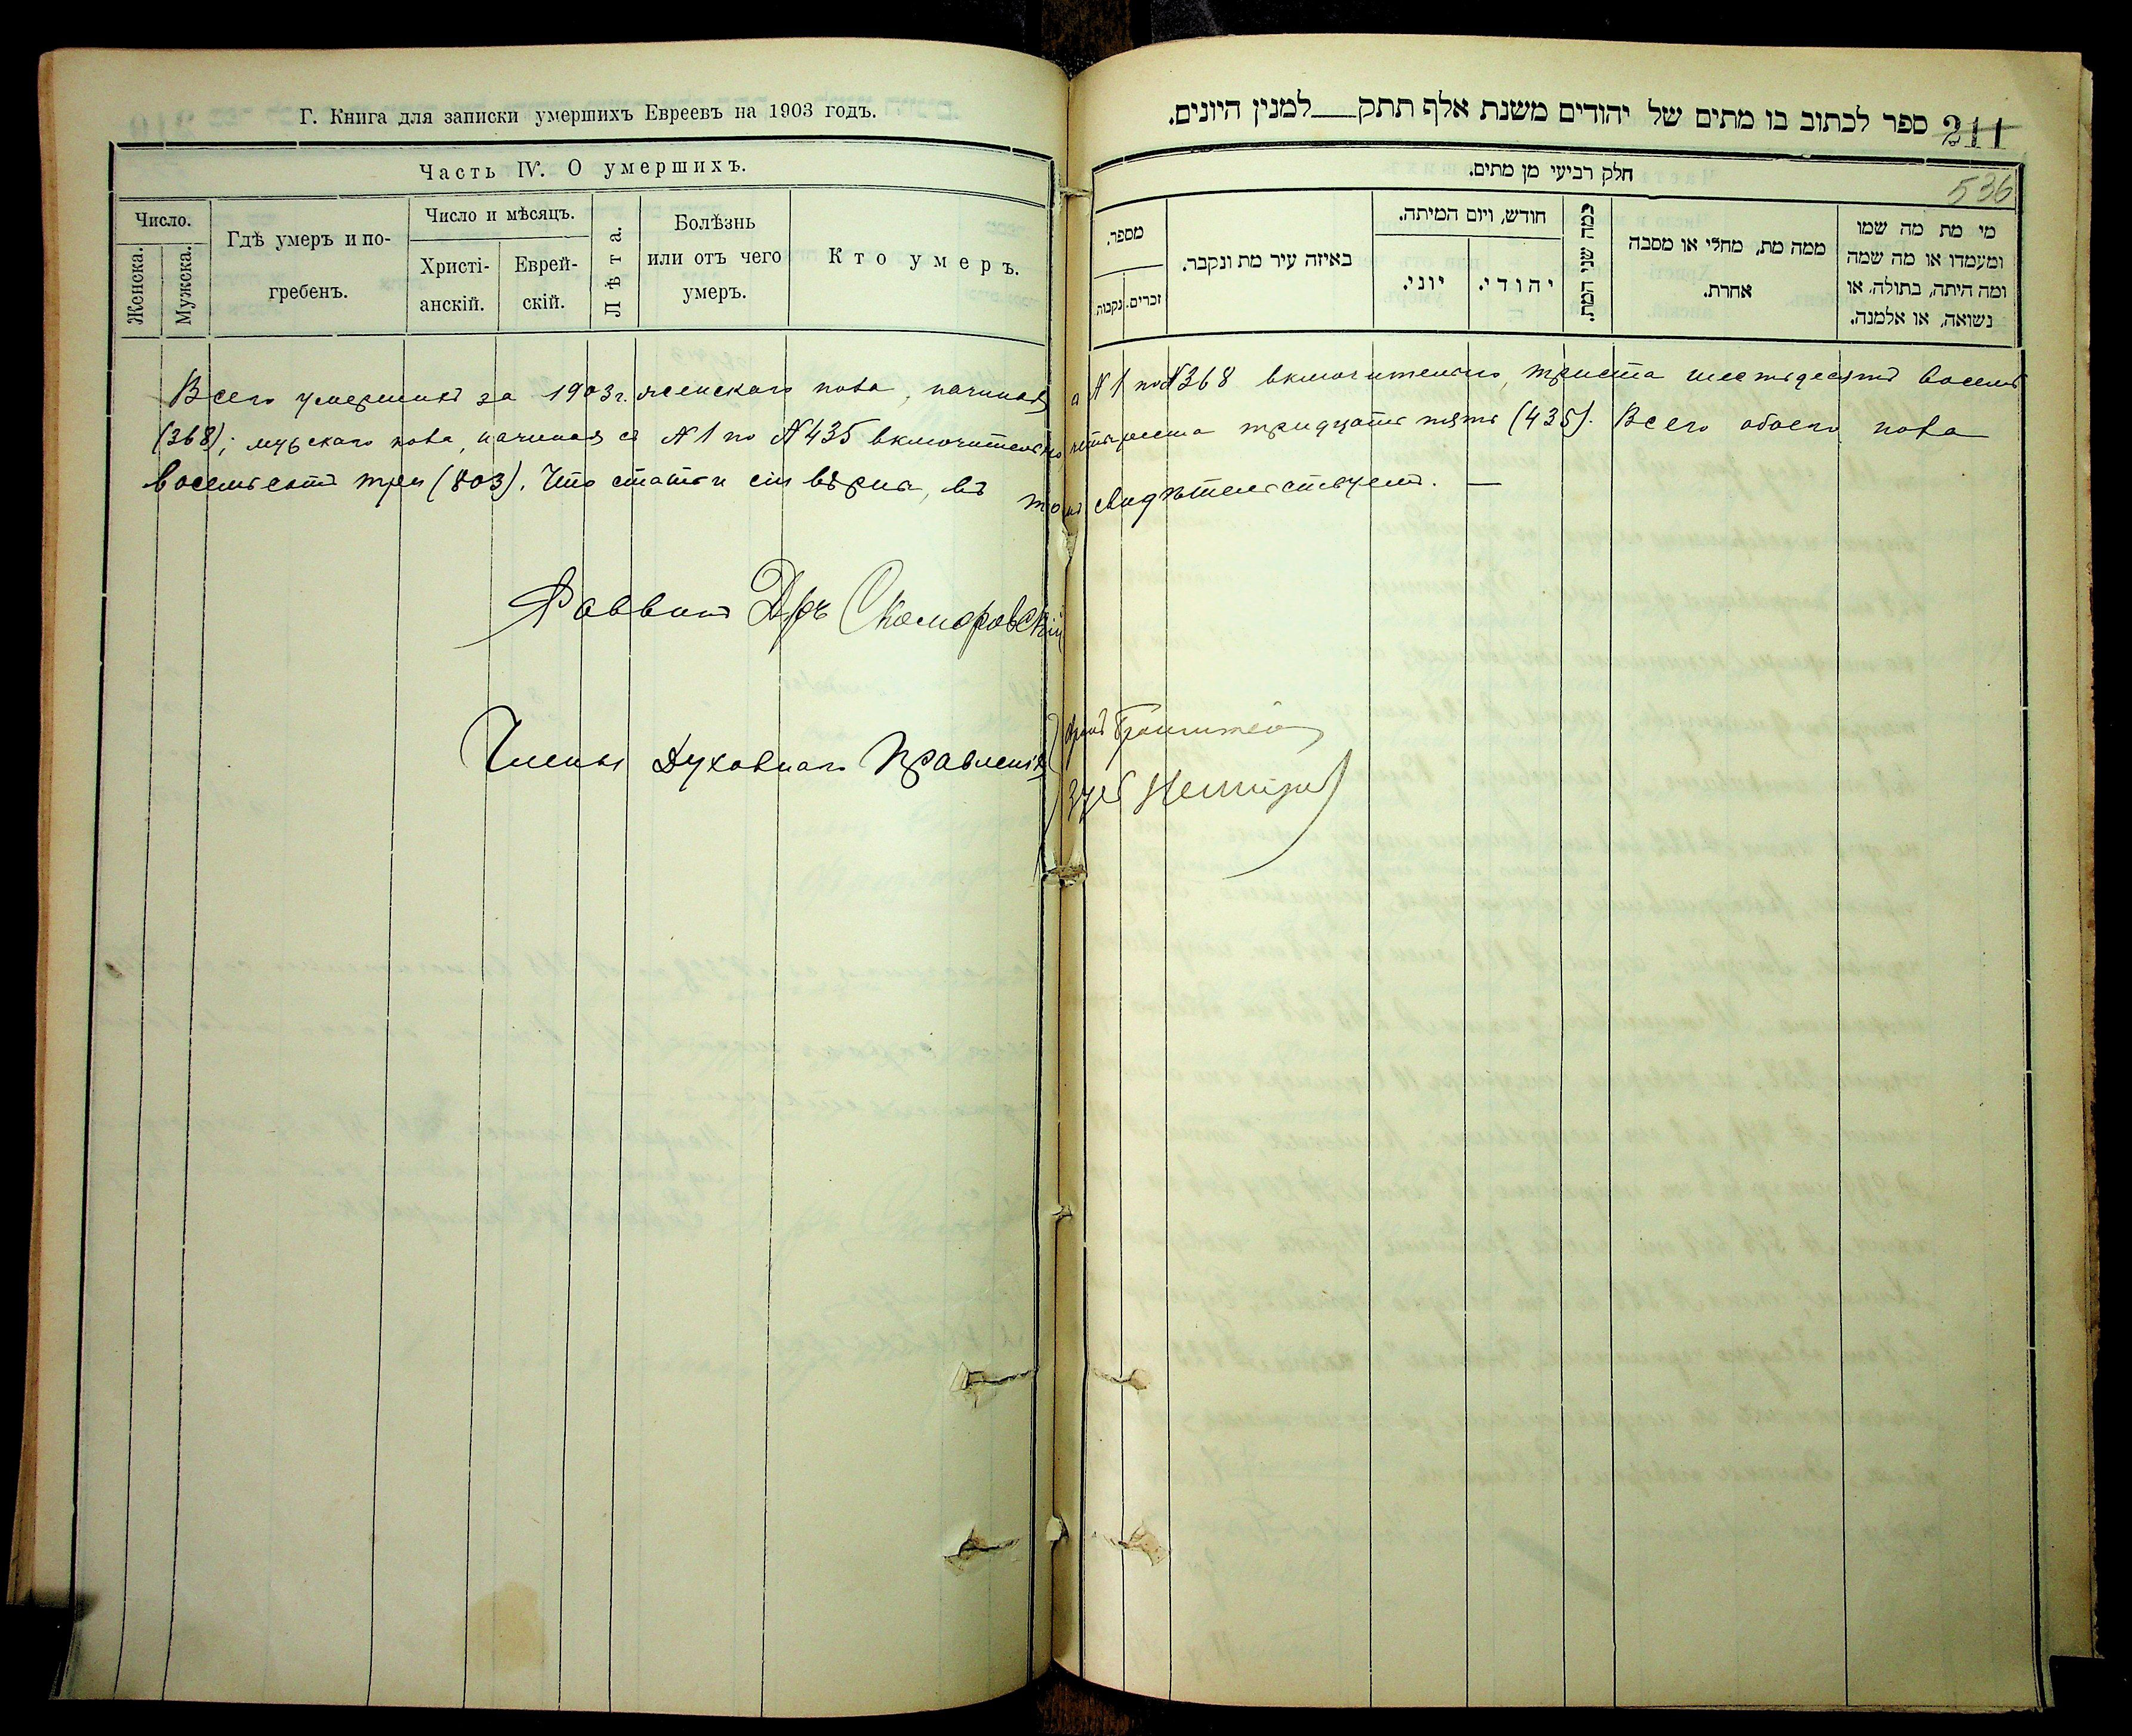 Г. Книга для записки умершихъ Евреевъ на 1903 годъ.
Часть IV. О умершихъ.
Число.
Женска.
Мужска.
Гдѣ умеръ и по-
гребенъ.
Число и мѣсяцъ.
Христі-
анскій.
Еврей-
скій.
Лѣта.
Болѣзнь
или отъ чего
умеръ.
Кто умеръ.
211 ספר לכתוב בו מתים של יהודים משנת אלף תתק___למנין היונים.
536
חלק רביעי מן מתים.
מספר.
נקבות.
זכרים.
באיזה עיר מת ונקבר.
חודש, ויום המיתה.
יוני.
יהודי.
כמה שני המת.
ממה מת, מחלי או מסבה
אחרת.
מי מת מה שמו
ומעמדו או מה שמה
ומה היתה, בתולה, או
נשואה, או אלמנה.
Всего умершихъ за 1903 г. женскаго пола, начиная с № 1 по № 368 включительно, триста шестьдесятъ восемь
(368); мужскаго пола, начиная съ № 1 по № 435 включительно, четыреста тридцать пять (435). Всего обоего пола
восемьсотъ три (803). Что статьи сіи вѣрны, въ томъ свидѣтельствуемъ. —
Раввинъ Дръ Скоморовскій
Члены Духовнаго Правленія